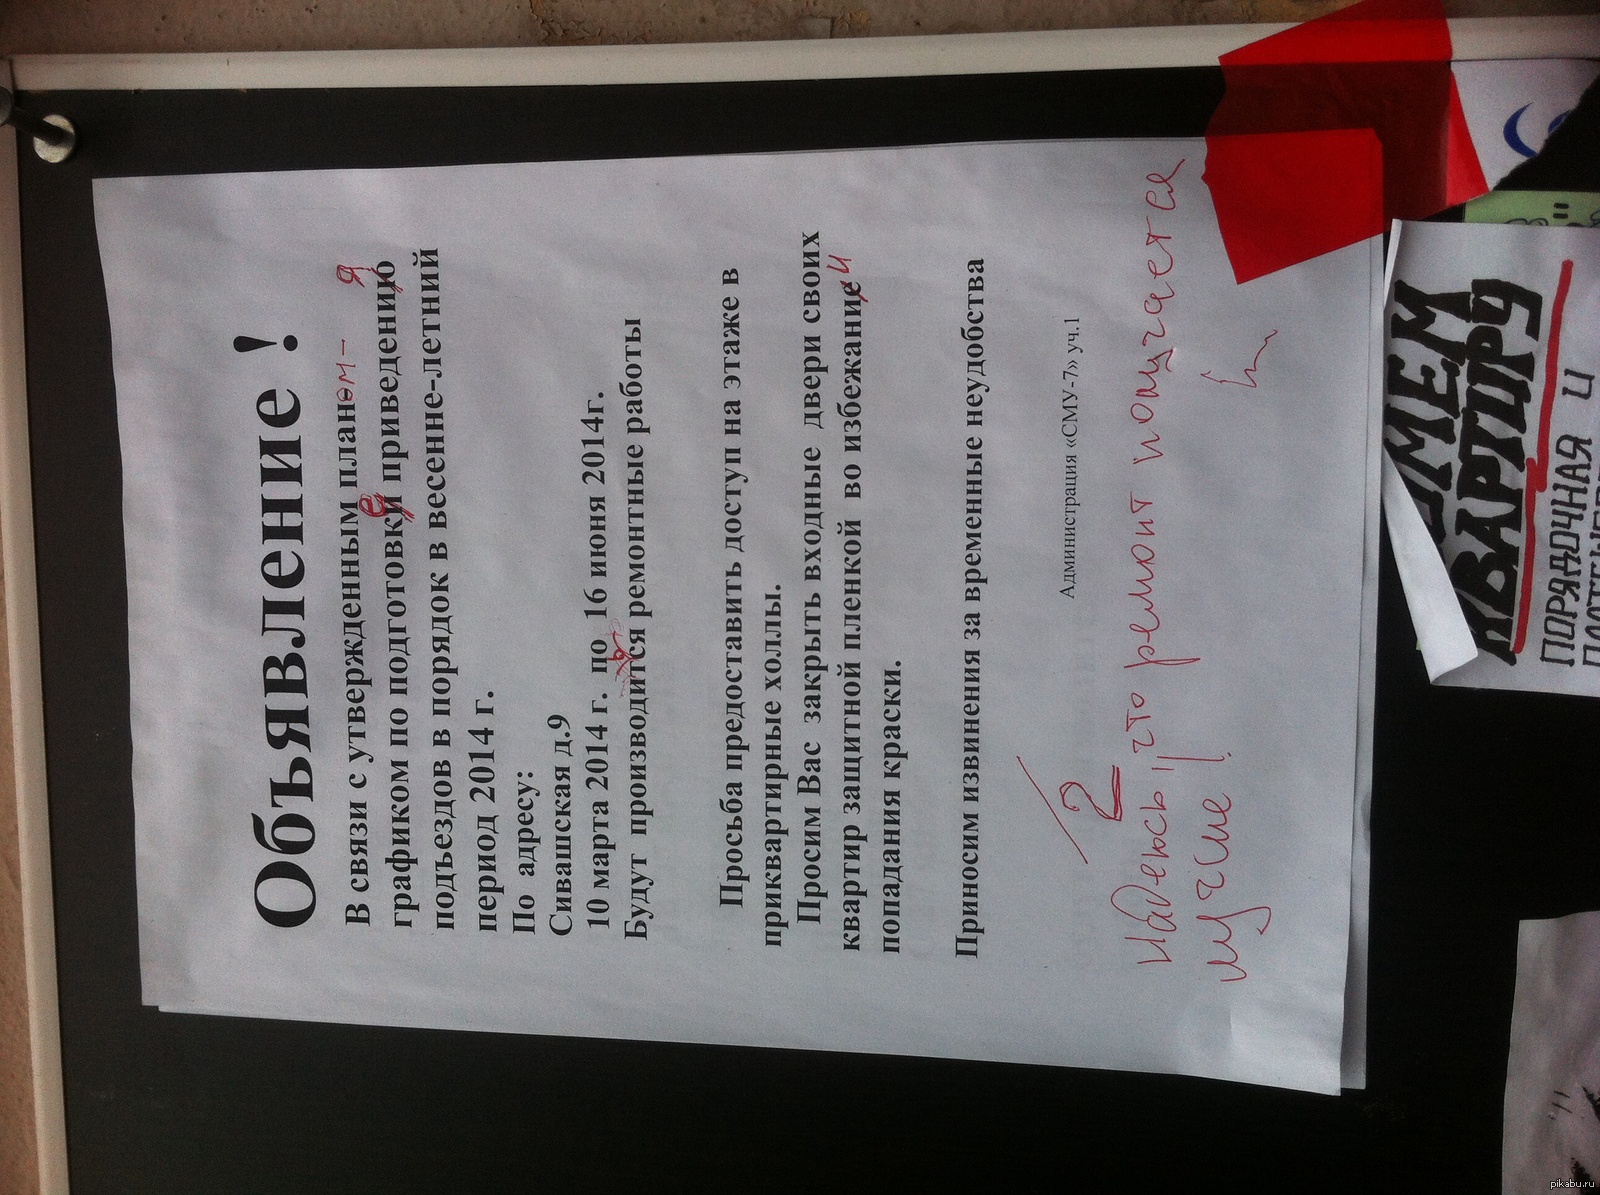 Объявление !
В связи с утвержденным планом-
графиком по подготовки е приведению я
подъездов в порядок в весенне-летний
период 2014 г.
По адресу:
Сивашская д.9
10 марта 2014 г. по 16 июня 2014г.
Будут производится ремонтные работы
Просьба предоставить доступ на этаже в
приквартирные холлы.
Просим Вас закрыть входные двери своих
квартир защитной пленкой во избежание и
попадания краски.
Приносим извинения за временные неудобства
Администрация «СМУ-7» уч.1
2
Надеюсь, что ремонт получается
лучше!
КВАРТИРУ
ПОРЯДОЧНАЯ И
pikabu.ru